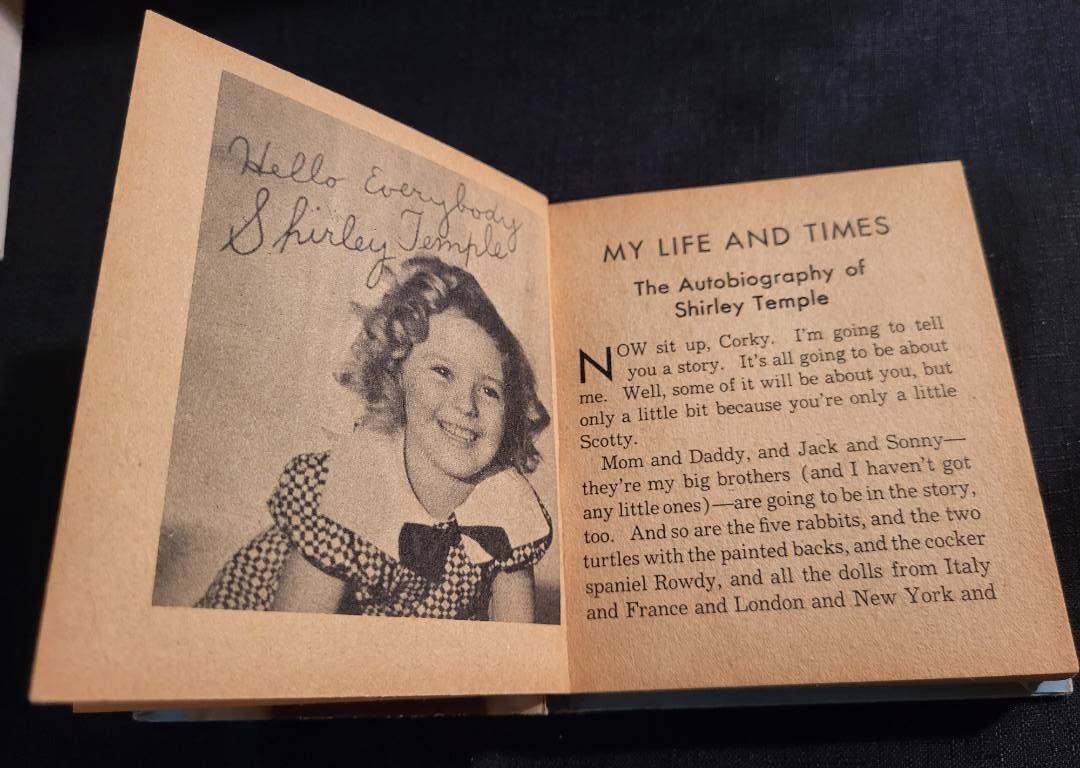 Hello Everybody
Shirley Temple
MY LIFE AND TIMES
The Autobiography of
Shirley Temple
NOW sit up, Corky. I'm going to tell
you a story. It's all going to be about
me. Well, some of it will be about you, but
only a little bit because you're only a little
Scotty.
Mom and Daddy, and Jack and Sonny—
they're my big brothers (and I haven't got
any little ones)—are going to be in the story,
too. And so are the five rabbits, and the two
turtles with the painted backs, and the cocker
spaniel Rowdy, and all the dolls from Italy
and France and London and New York and